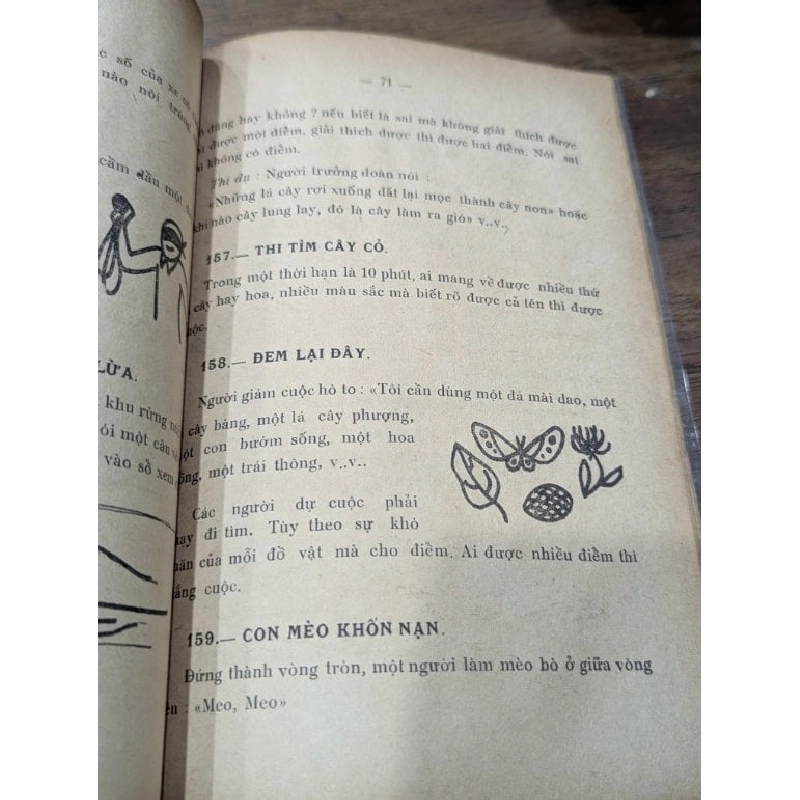 số của xe cô
nào nói trúng
cầm đầu một
LỪA.
khu rừng
ói một câu
vào sổ xem
— 71 —
đúng hay không ? nếu biết là sai mà không giải thích được
được một điểm, giải thích được thì được hai điểm. Nói sai
không có điểm.
Thí dụ : Người trưởng đoàn nói :
«Những lá cây rơi xuống đất lại mọc thành cây non» hoặc
khi nào cây lung lay, đó là cây làm ra gió» v..v..
157.— THI TÌM CÂY CỎ.
Trong một thời hạn là 10 phút, ai mang về được nhiều thứ
cây hay hoa, nhiều màu sắc mà biết rõ được cả tên thì được
uộc.
158.— ĐEM LẠI ĐÂY.
Người giám cuộc hò to : «Tôi cần dùng một đá mài dao, một
cây bàng, một lá cây phượng,
ột con bướm sống, một hoa
ồng, một trái thông, v..v..
Các người dự cuộc phải
hay đi tìm. Tùy theo sự khó
hăn của mỗi đồ vật mà cho điểm. Ai được nhiều điểm thì
hắng cuộc.
159.— CON MÈO KHỐN NẠN.
Đứng thành vòng tròn, một người làm mèo bò ở giữa vòng
êu : «Meo, Meo»